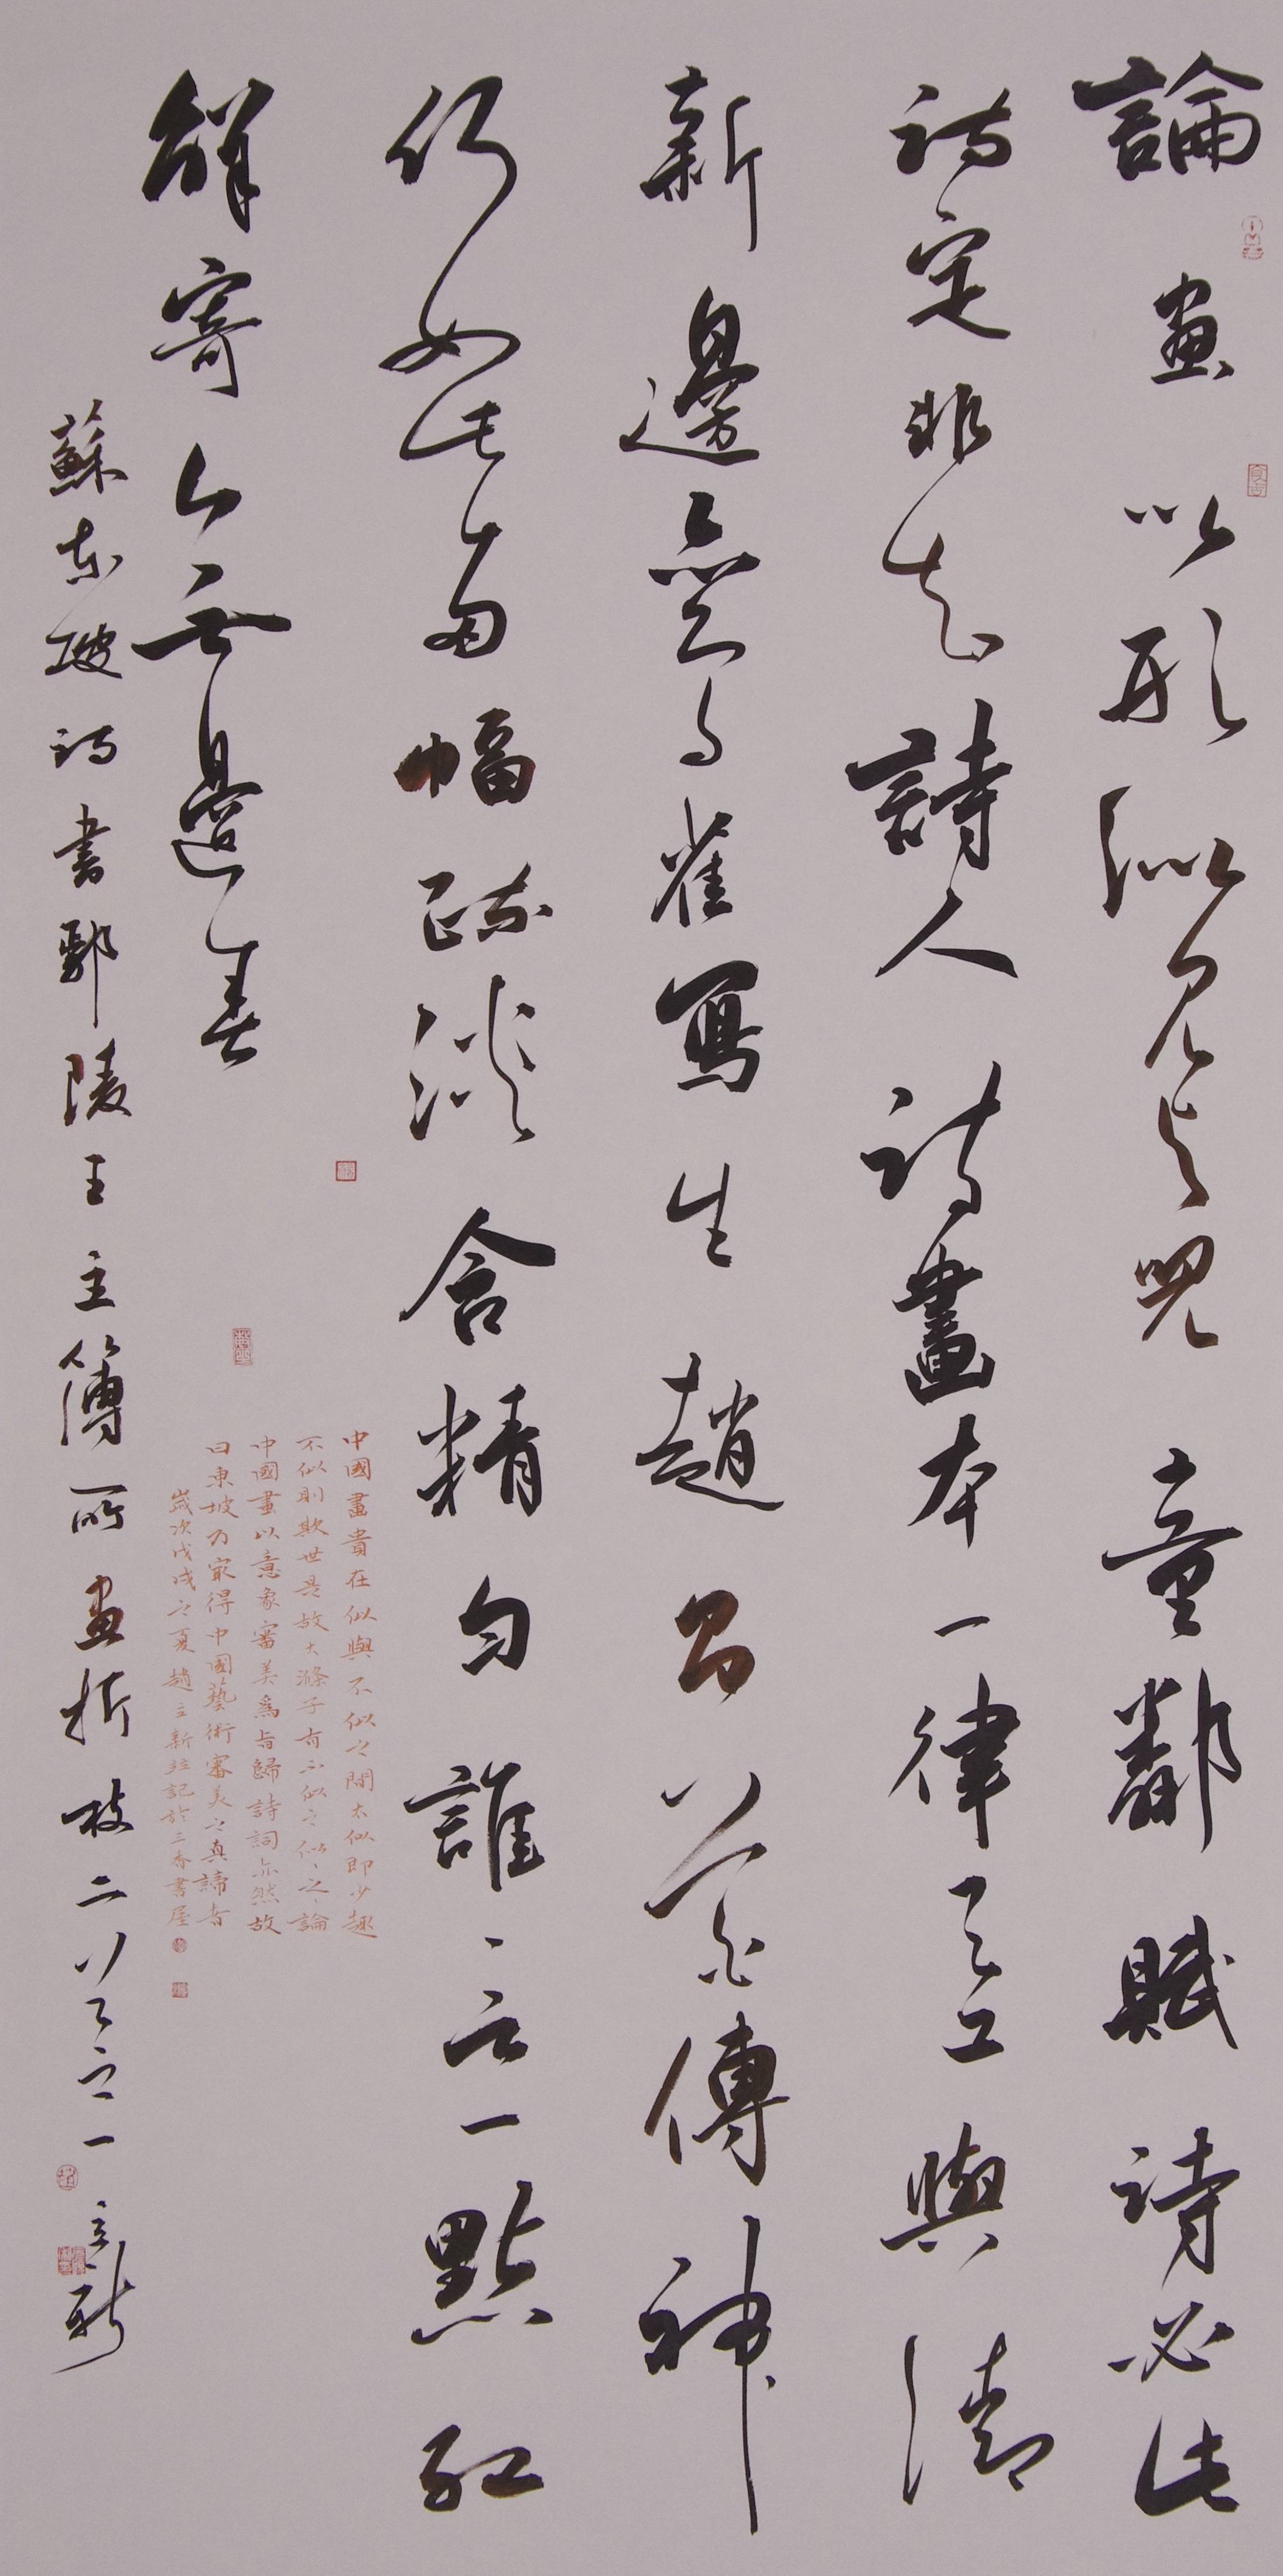 論畫以形似見與兒童鄰賦詩必此
詩定非知詩人詩畫本一律天工與清
新邊鸞雀寫生趙昌花傳神
何如此兩幅疏淡含精勻誰言一點紅
解寄無邊春
蘇東坡詩書鄢陵王主簿所畫折枝二首之一 立新
中國畫貴在似與不似之間太似即少趣
不似則欺世是故大滌子有不似之似似之論
中國畫以意象審美爲旨歸詩詞亦然故
曰東坡乃最得中國藝術審美之真諦者
歲次戊戌之夏趙立新並記於三香書屋